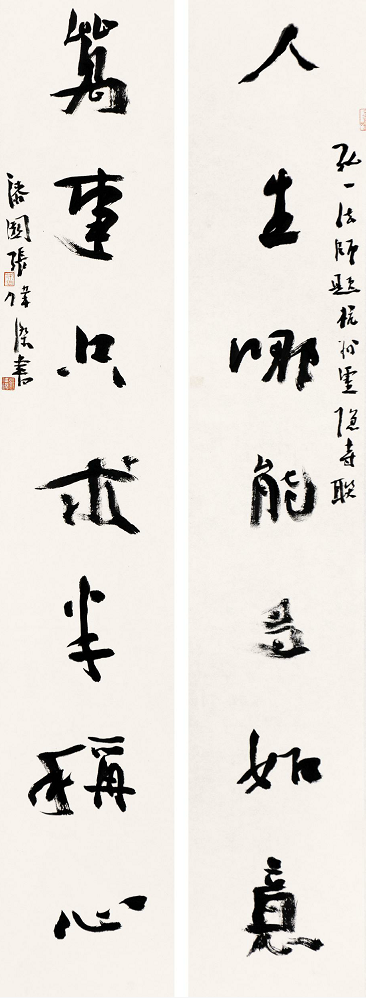 弘一法師題杭州靈隱寺聯
人生哪能多如意
萬事只求半稱心
國張偉傑書